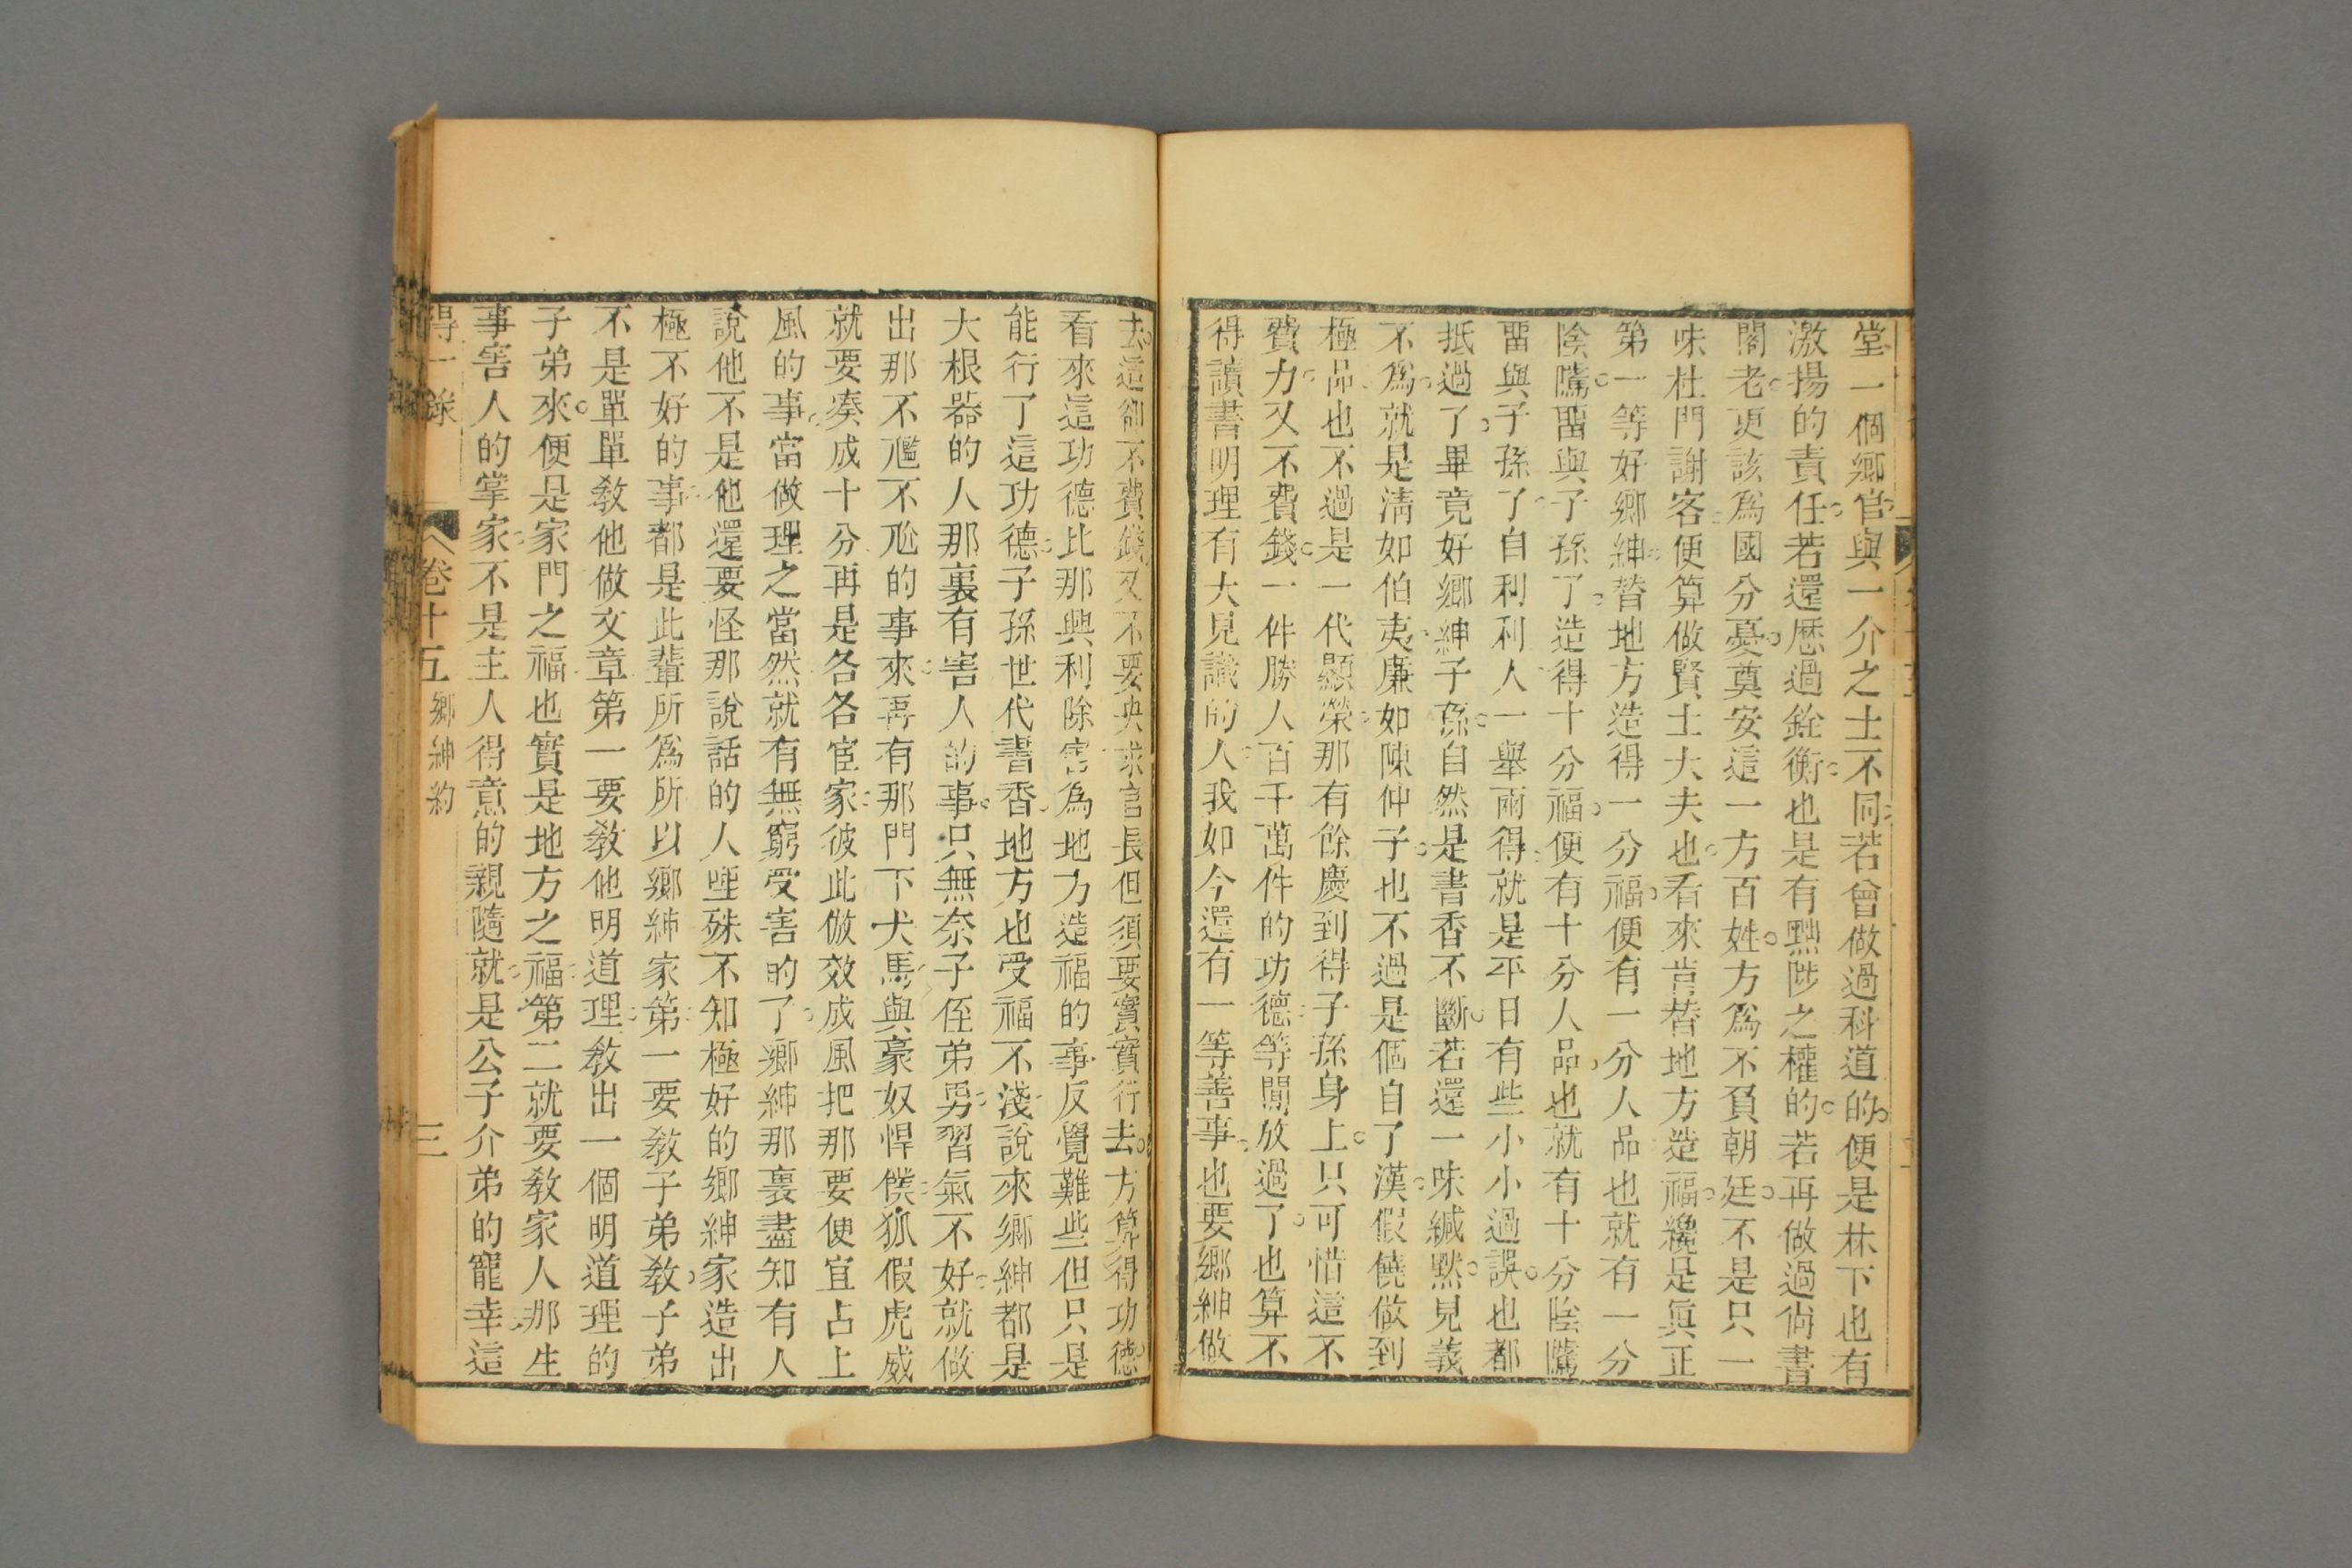 堂一個鄉官與一介之士不同若曾做過科道的便是林下也有
激揚的責任若還歷過銓衡也是有黜陟之權的若再做過尙書
閣老更該爲國分憂奠安這一方百姓方爲不負朝廷不是只一
味杜門謝客便算做賢士大夫也看來肯替地方造福纔是眞正
第一等好鄉紳替地方造得一分福便有一分人品也就有一分
陰隲畱與子孫了造得十分福便有十分人品也就有十分陰隲
畱與子孫了自利利人一舉兩得就是平日有些小小過誤也都
抵過了畢竟好鄉紳子孫自然是書香不斷若還一味緘默見義
不爲就是淸如伯夷廉如陳仲子也不過是個自了漢假饒做到
極品也不過是一代顯榮那有餘慶到得子孫身上只可惜這不
費力又不費錢一件勝人百千萬件的功德等閒放過了也算不
得讀書明理有大見識的人我如今還有一等善事也要鄉紳做
去這卻不費錢又不要央求官長但須要實實行去方算得功德
看來這功德比那興利除害爲地方造福的事反覺難些但只是
能行了這功德子孫世代書香地方也受福不淺說來鄉紳都是
大根器的人那裏有害人的事只無奈子侄弟男習氣不好就做
出那不尷不尬的事來再有那門下犬馬與豪奴悍僕狐假虎威
就要凑成十分再是各各宦家彼此倣效成風把那要便宜占上
風的事當做理之當然就有無窮受害的了鄉紳那裏盡知有人
說他不是他還要怪那說話的人哩殊不知極好的鄉紳家造出
極不好的事都是此輩所爲所以鄉紳家第一要敎子弟敎子弟
不是單單敎他做文章第一要敎他明道理敎出一個明道理的
子弟來便是家門之福也實是地方之福第二就要敎家人那生
事害人的掌家不是主人得意的親隨就是公子介弟的寵幸這
得一錄 卷十五 鄉紳約 三